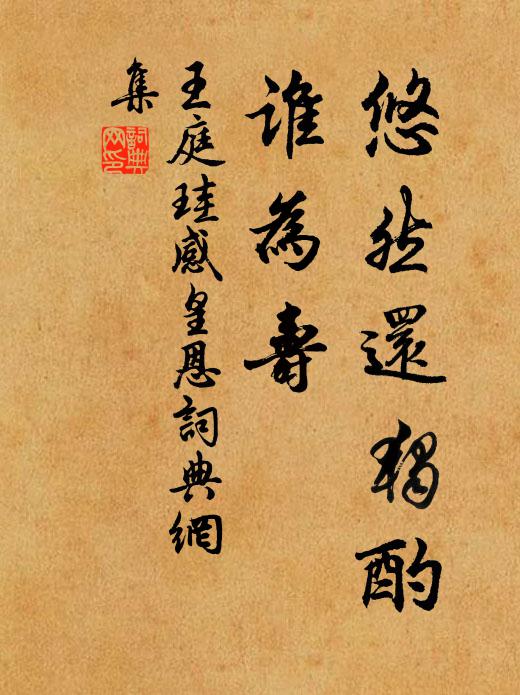 悠然還獨酌
誰為壽
王庭珪感皇恩詞典網
集
詞典
网印